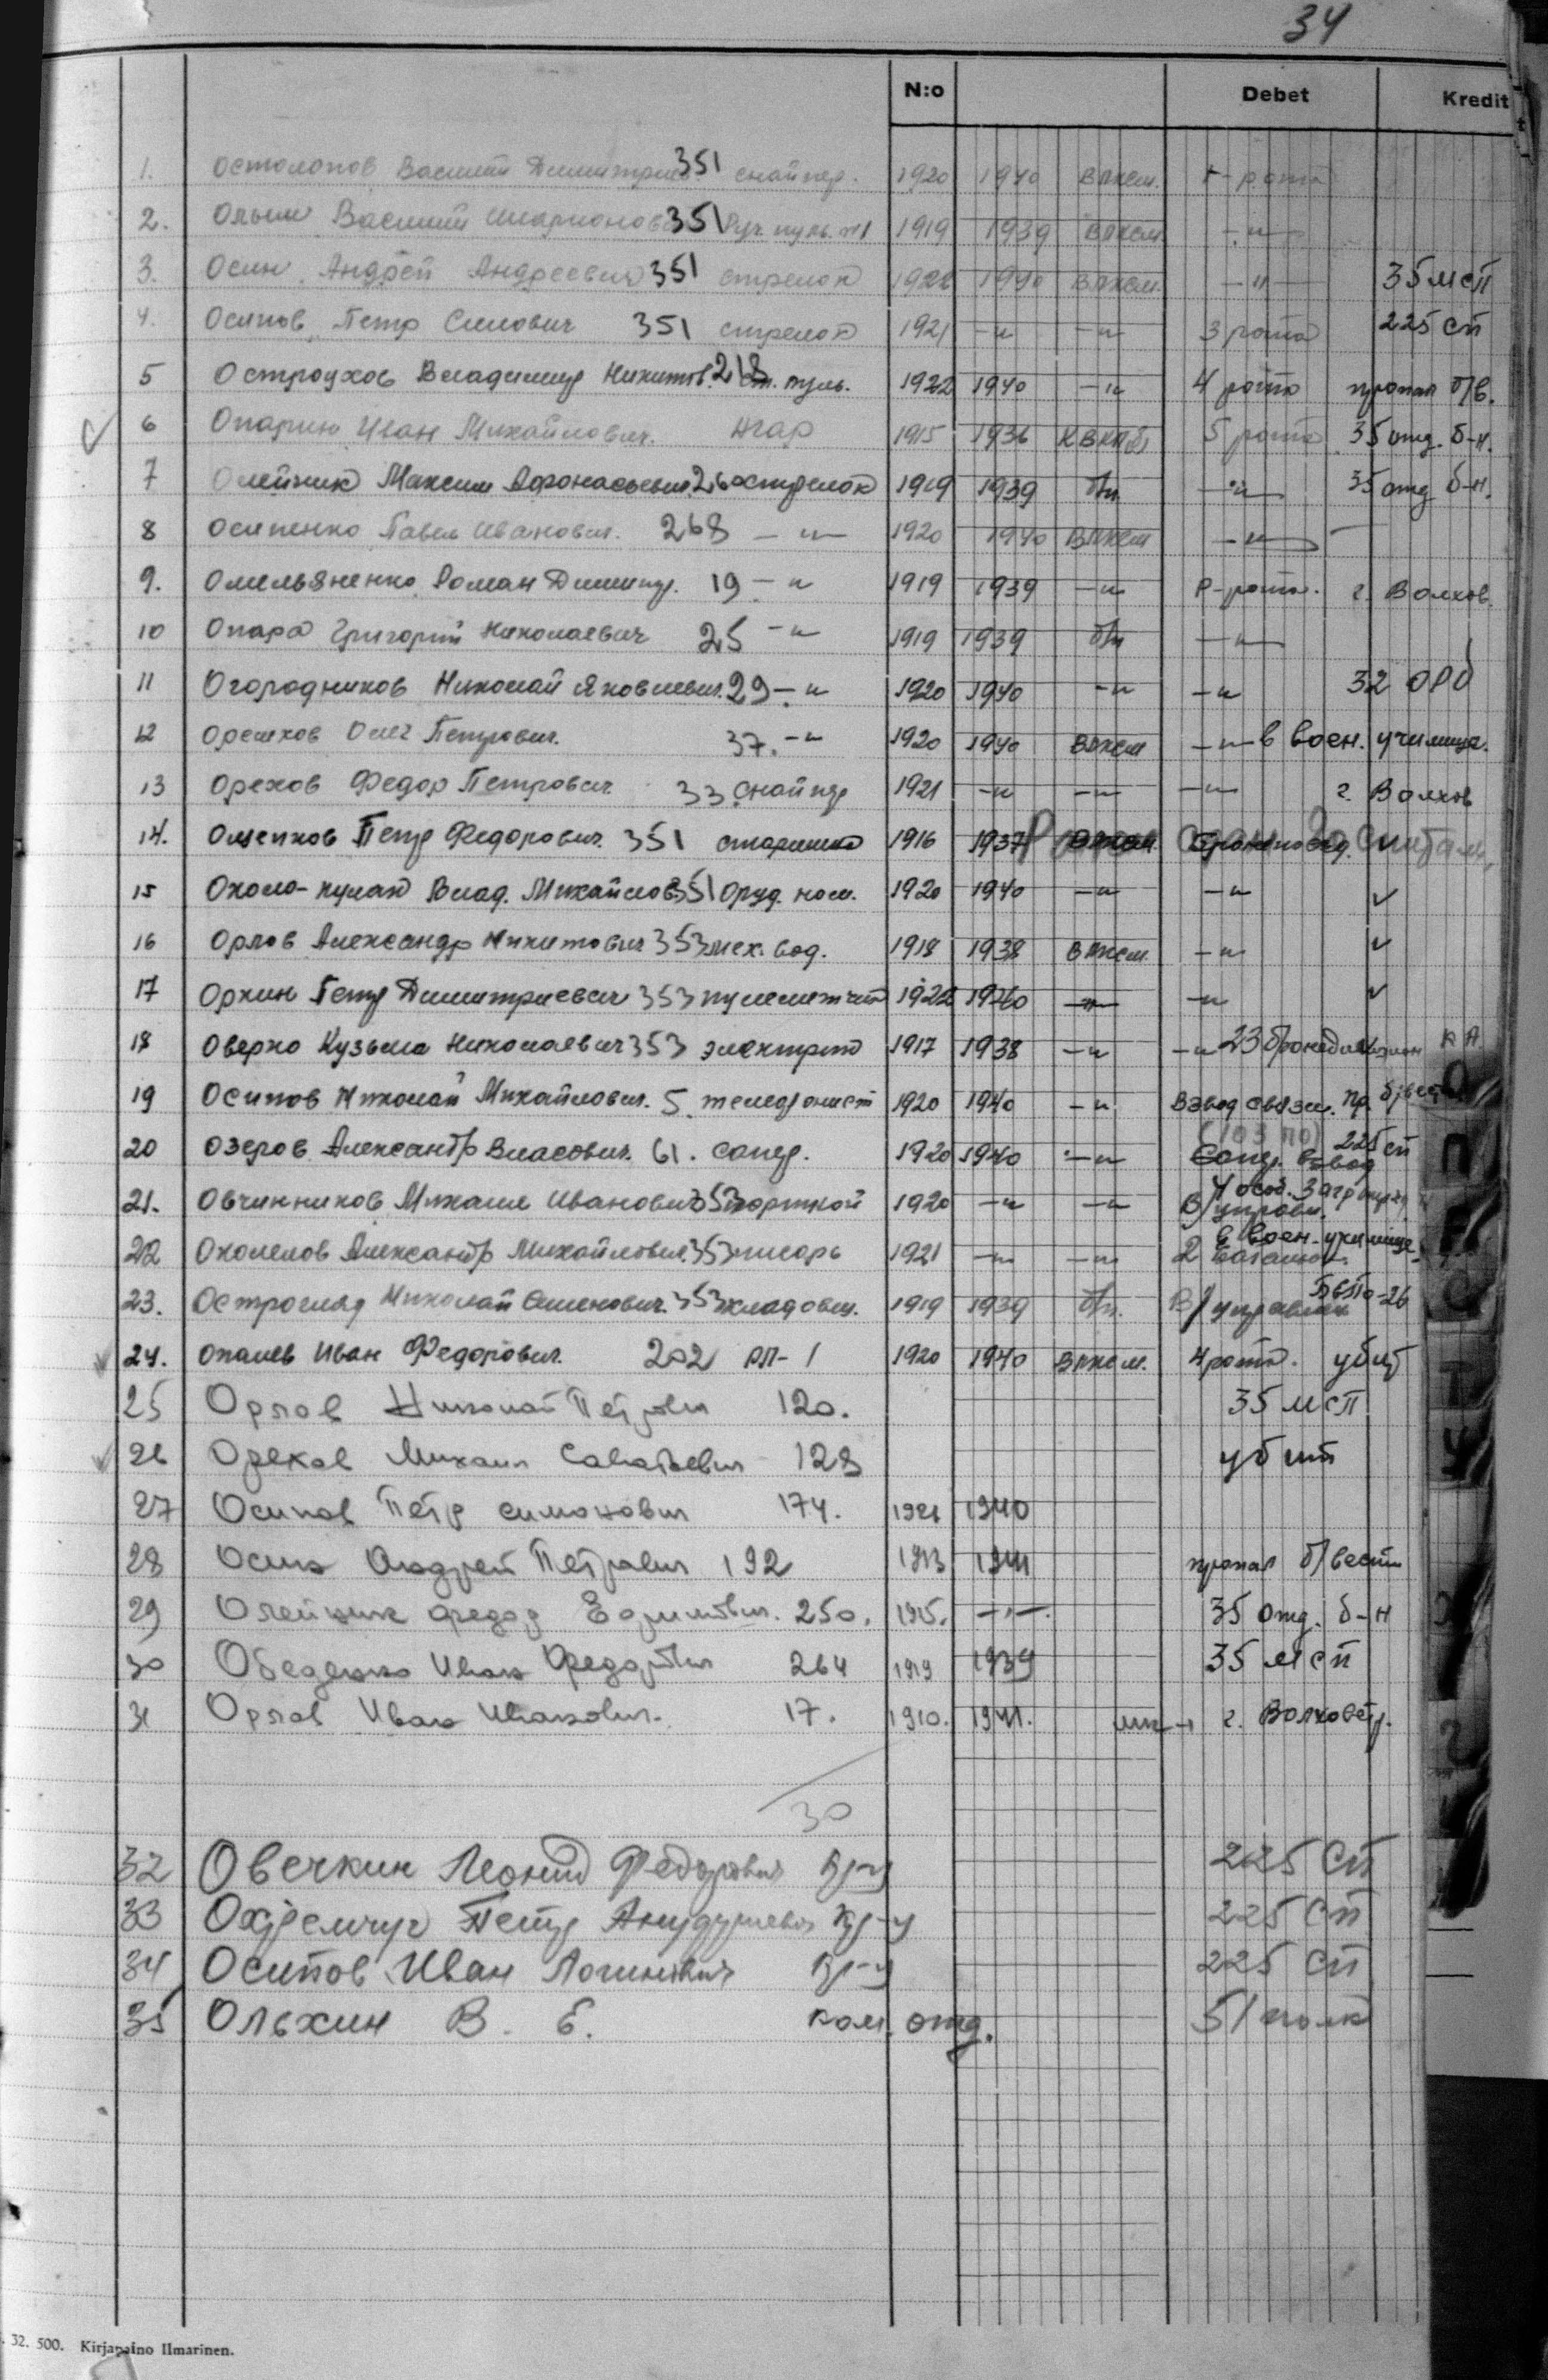 34
N:o Debet Kredit
1. Остолопов Василий Дмитриев. 351 снайпер. 1920 1940 ВЛКСМ. рота
2. Василий Иларионов 351 Руч. пул. №1 1919 1939 ВЛКСМ. -"-
3. Осин Андрей Андреевич 351 стрелок 1922 1940 ВЛКСМ. -"- 35 мсп
4. Осипов Петр Силович 351 стрелок 1921 -"- -"- 3 рота 225 сп
5 Остроухов Владимир Никитов. 218 ст. пуль. 1922 1940 -"- 4 рота пропал б/в.
6 Опарин Иван Михайлович. 1915 1936 КВКП(б) 5 рота 35 отд. б-н.
7 Олейник Максим Афонасьевич 260 стрелок 1919 1939 б/п. -"- 35 отд б-н.
8 Осипенко Павел Иванович. 268 -"- 1920 1940 ВЛКСМ -"-
9. Омельяненко Роман Дмитр. 19 -"- 1919 1939 -"- Р-рота. г. Волхов.
10 Опара Григорий Николаевич 25 -"- 1919 1939 б/п -"-
11 Огородников Николай Яковлевич. 29 -"- 1920 1940 -"- -"- 32 ОРБ
12 Орешков Олег Петрович. 37. -"- 1920 1940 ВЛКСМ -"- в воен. училище.
13 Орехов Федор Петрович 33 снайпер 1921 -"- -"- -"- г. Волхов
14. Ощепков Петр Федорович. 351 старшина 1916 1937 ВЛКСМ
15 Около-кулак Влад. Михайлов 351 оруд. ном. 1920 1940 -"- -"- ✓
16 Орлов Александр Никитович 353 мех. вод. 1918 1938 ВЛКСМ. -"- ✓
17 Оркин Петр Дмитриевич 353 пулеметчик 1922 1940 -"- -"- ✓
18 Оверко Кузьма Николаевич 353 электрик 1917 1938 -"- -"- 23 бронедивизион КА
19 Осипов Николай Михайлович. 5. телефонист 1920 1940 -"- Взвод связи. пр. б/вести
20 Озеров Александр Власович. 61. сапер. 1920 1940 -"- Сапер. взвод (103 по) 225 сп
21. Овчинников Михаил Иванович 353 портной 1920 -"- -"- В/управл. 4 особ.
22 Околелов Александр Михайлович. 353 писарь 1921 -"- -"- 2 Баталион. в воен. училище
23. Строгляд Николай Семенович. 353 кладовщ. 1919 1939 б/п. В/управлен
24. Опалев Иван Федорович. 202 РП-1 1920 1940 ВЛКСМ. 4 рота. убит
25 Орлов Николай Петрович 120. 35 мсп
26 Орехов Михаил Саватьевич 128 убит
27 Осипов Петр Симонович 174. 1921 1940
28 Осин Андрей Петрович 192 1913 1941 пропал б/вести
29 Олейник Федор Ефимович. 250. 1915. -"-. 35 отд. б-н
30 Обеденко Иван Федорович 264 1919 1939 35 мсп
31 Орлов Иван Иванович. 17. 1910. 1941. г. Волховстр.
30
32 Овечкин Леонид Федорович кр-ц 225 СП
33 Охремчук Петр кр-ц 225 СП
34 Осипов Иван Логинович кр-ц 225 СП
35 Ольхин В. Е. ком. отд. 51 полк
32. 500. Kirjapaino Ilmarinen.